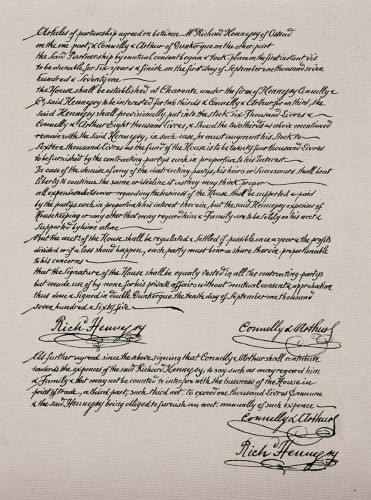 Articles of partnership agreed on between Mr Richard Hennessy of Ostend
on the one part, & Connelly & Arthur of Dunkerque on the other part
the said Partnership by mutual consent began & took place on the first instant &
to be durable for Six years & finish on the first day of September one thousand seven
hundred & Seventy one
the House shall be established at Charente under the form of Hennessy Connelly &
Co, said Hennessy to be interested for two thirds & Connelly & Arthur for one third, the
Said Hennessy shall provisionally put into the stock six Thousand Livres &
Connelly & Arthur Eight thousand Livres, & Should the two thirds as above mentioned
remain with the Said Hennessy, in such case, he must augment his Stock to
Sixteen thousand Livres as the fund of the House is to be twenty four thousand Livres
to be furnished by the contracting partys each in proportion to his Interest
In case of the demise of any of the contracting partys, his heirs or Successours shall be at
liberty to continue the same or decline it as they may think proper
all expences whatsoever regarding the business of the House shall be supported & paid
by the partys each in proportion to his interest therein, but the said Hennessy expences of
House keeping or any other that may regard him & Family are to be solely on his acct &
Supported by him alone
that the acct of the House shall be regulated & Settled if possible once a year & the profits
divided or if a loss should happen, each party must bear a share therein proportionable
to his concerns
that the Signature of the House shall be equally vested in all the contracting partys
but made use of by none for his private affairs without mutual consent & approbation
thus done & Signed in double Dunkerque the tenth day of September one thousand
seven hundred & Sixty five
Richd Hennessy Connelly & Arthur
As further agreed since the above signing that Connelly & Arthur shall contribute
towards the expences of the said Richard Hennessy, to say such as may regard him
& Family & that may not be counted to interfere with the business of the House in
point of trade, a third part, such third not to exceed one thousand Livres P annum
& the said Hennessy being obliged to furnish an acct. annually of such expence
Connelly & Arthur
Richd Hennessy